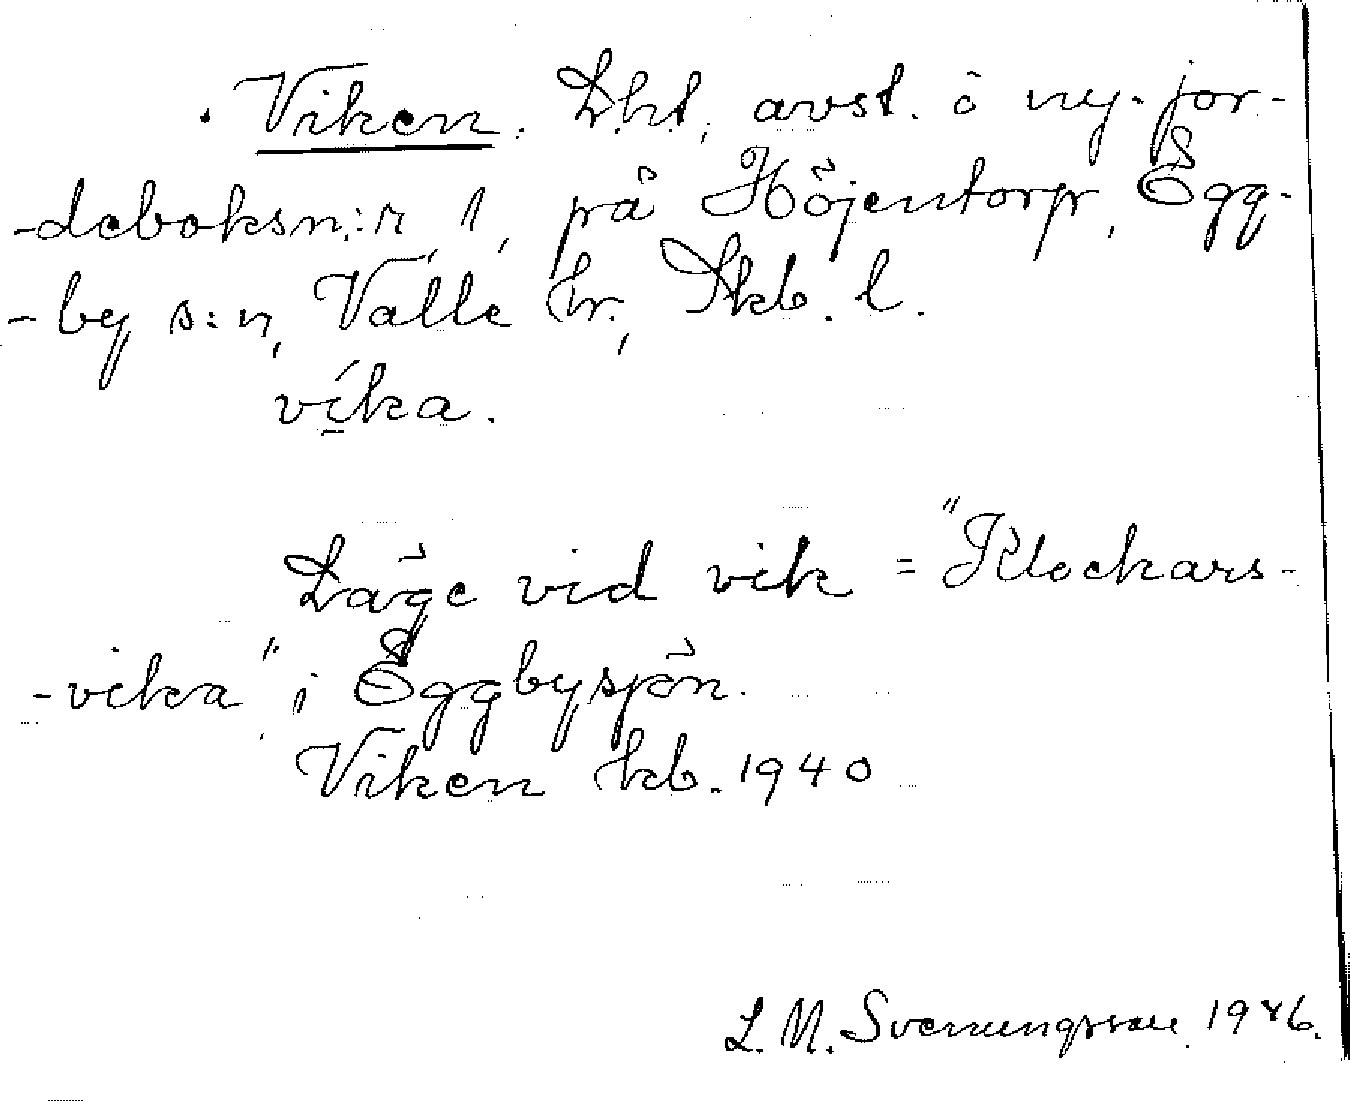 Viken. Lht, avst. å ny. jor-
-deboksn:r 1, på Höjentorp, Egg-
-by s:n, Valle hr., Skb. l.
víka.
Läge vid vik = "Klockars-
-vika" i Eggbysjön.
Viken kb. 1940
L. M. Svenungsson 1946.